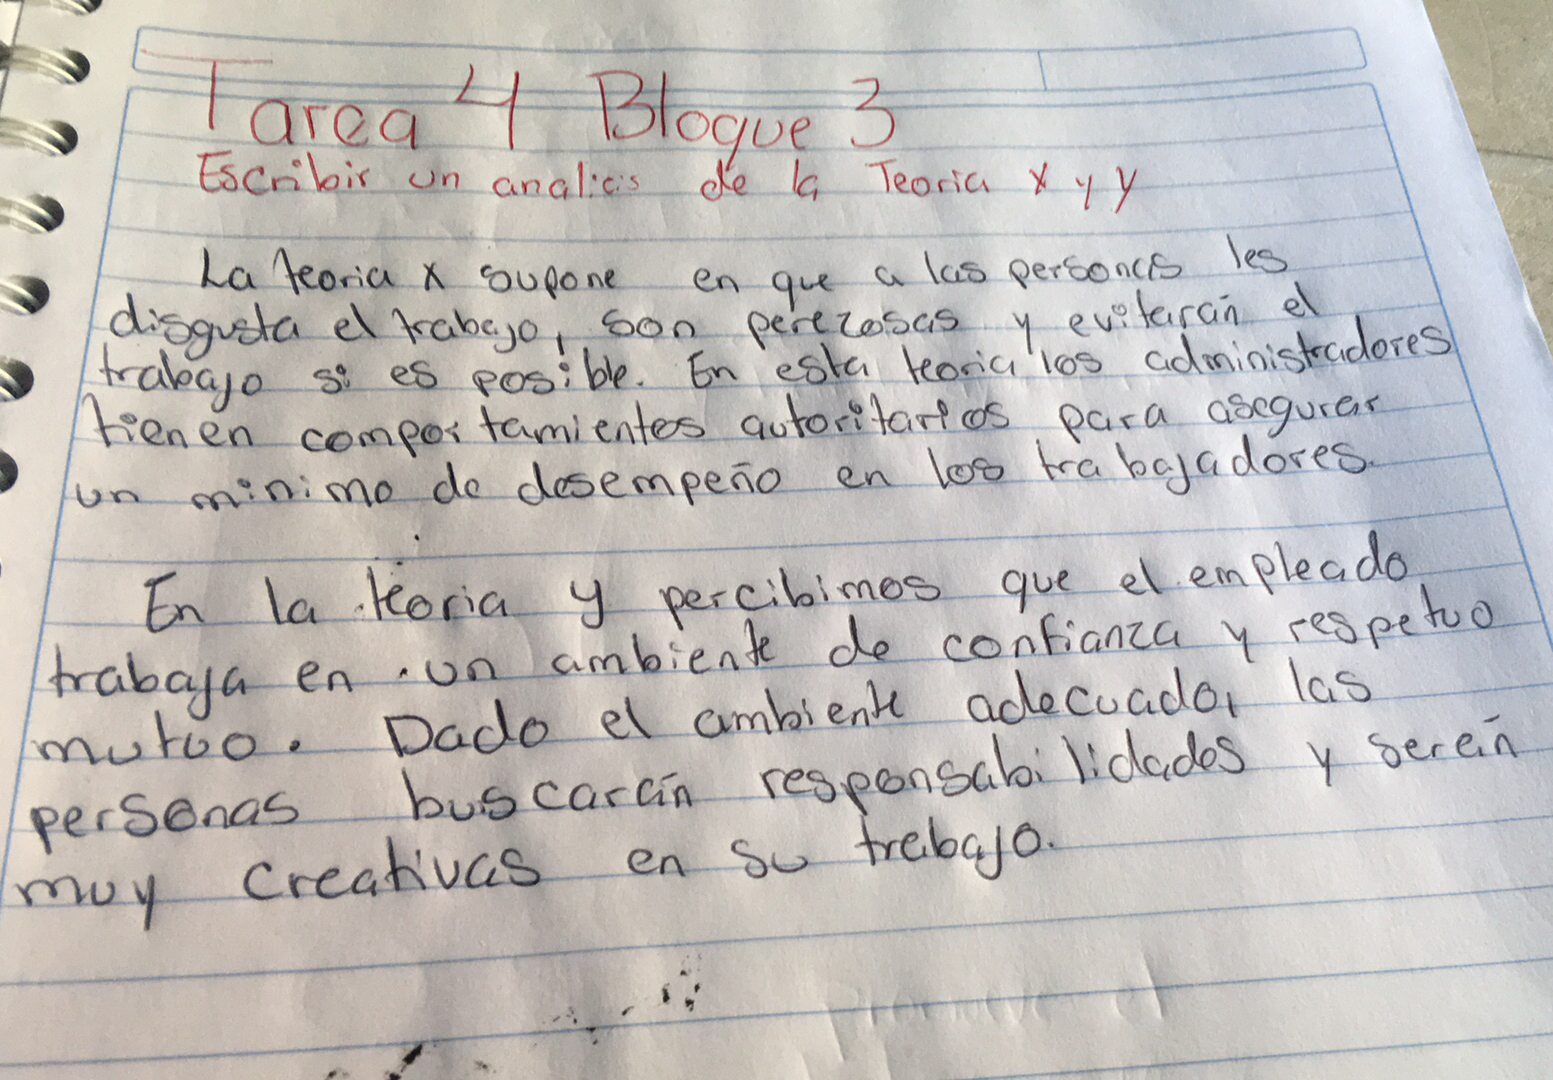 Tarea 4 Bloque 3
Escribir un analisis de la Teoria X y Y
La teoria X supone en que a las personas les
disgusta el trabajo, son perezosas y evitarán el
trabajo si es posible. En esta teoria los administradores
tienen comportamientos autoritarios para asegurar
un minimo de desempeño en los trabajadores.
En la teoria y percibimos que el empleado
trabaja en un ambiente de confianza y respetuo
mutuo. Dado el ambiente adecuado, las
personas buscarán responsabilidades y serán
muy creativas en su trabajo.